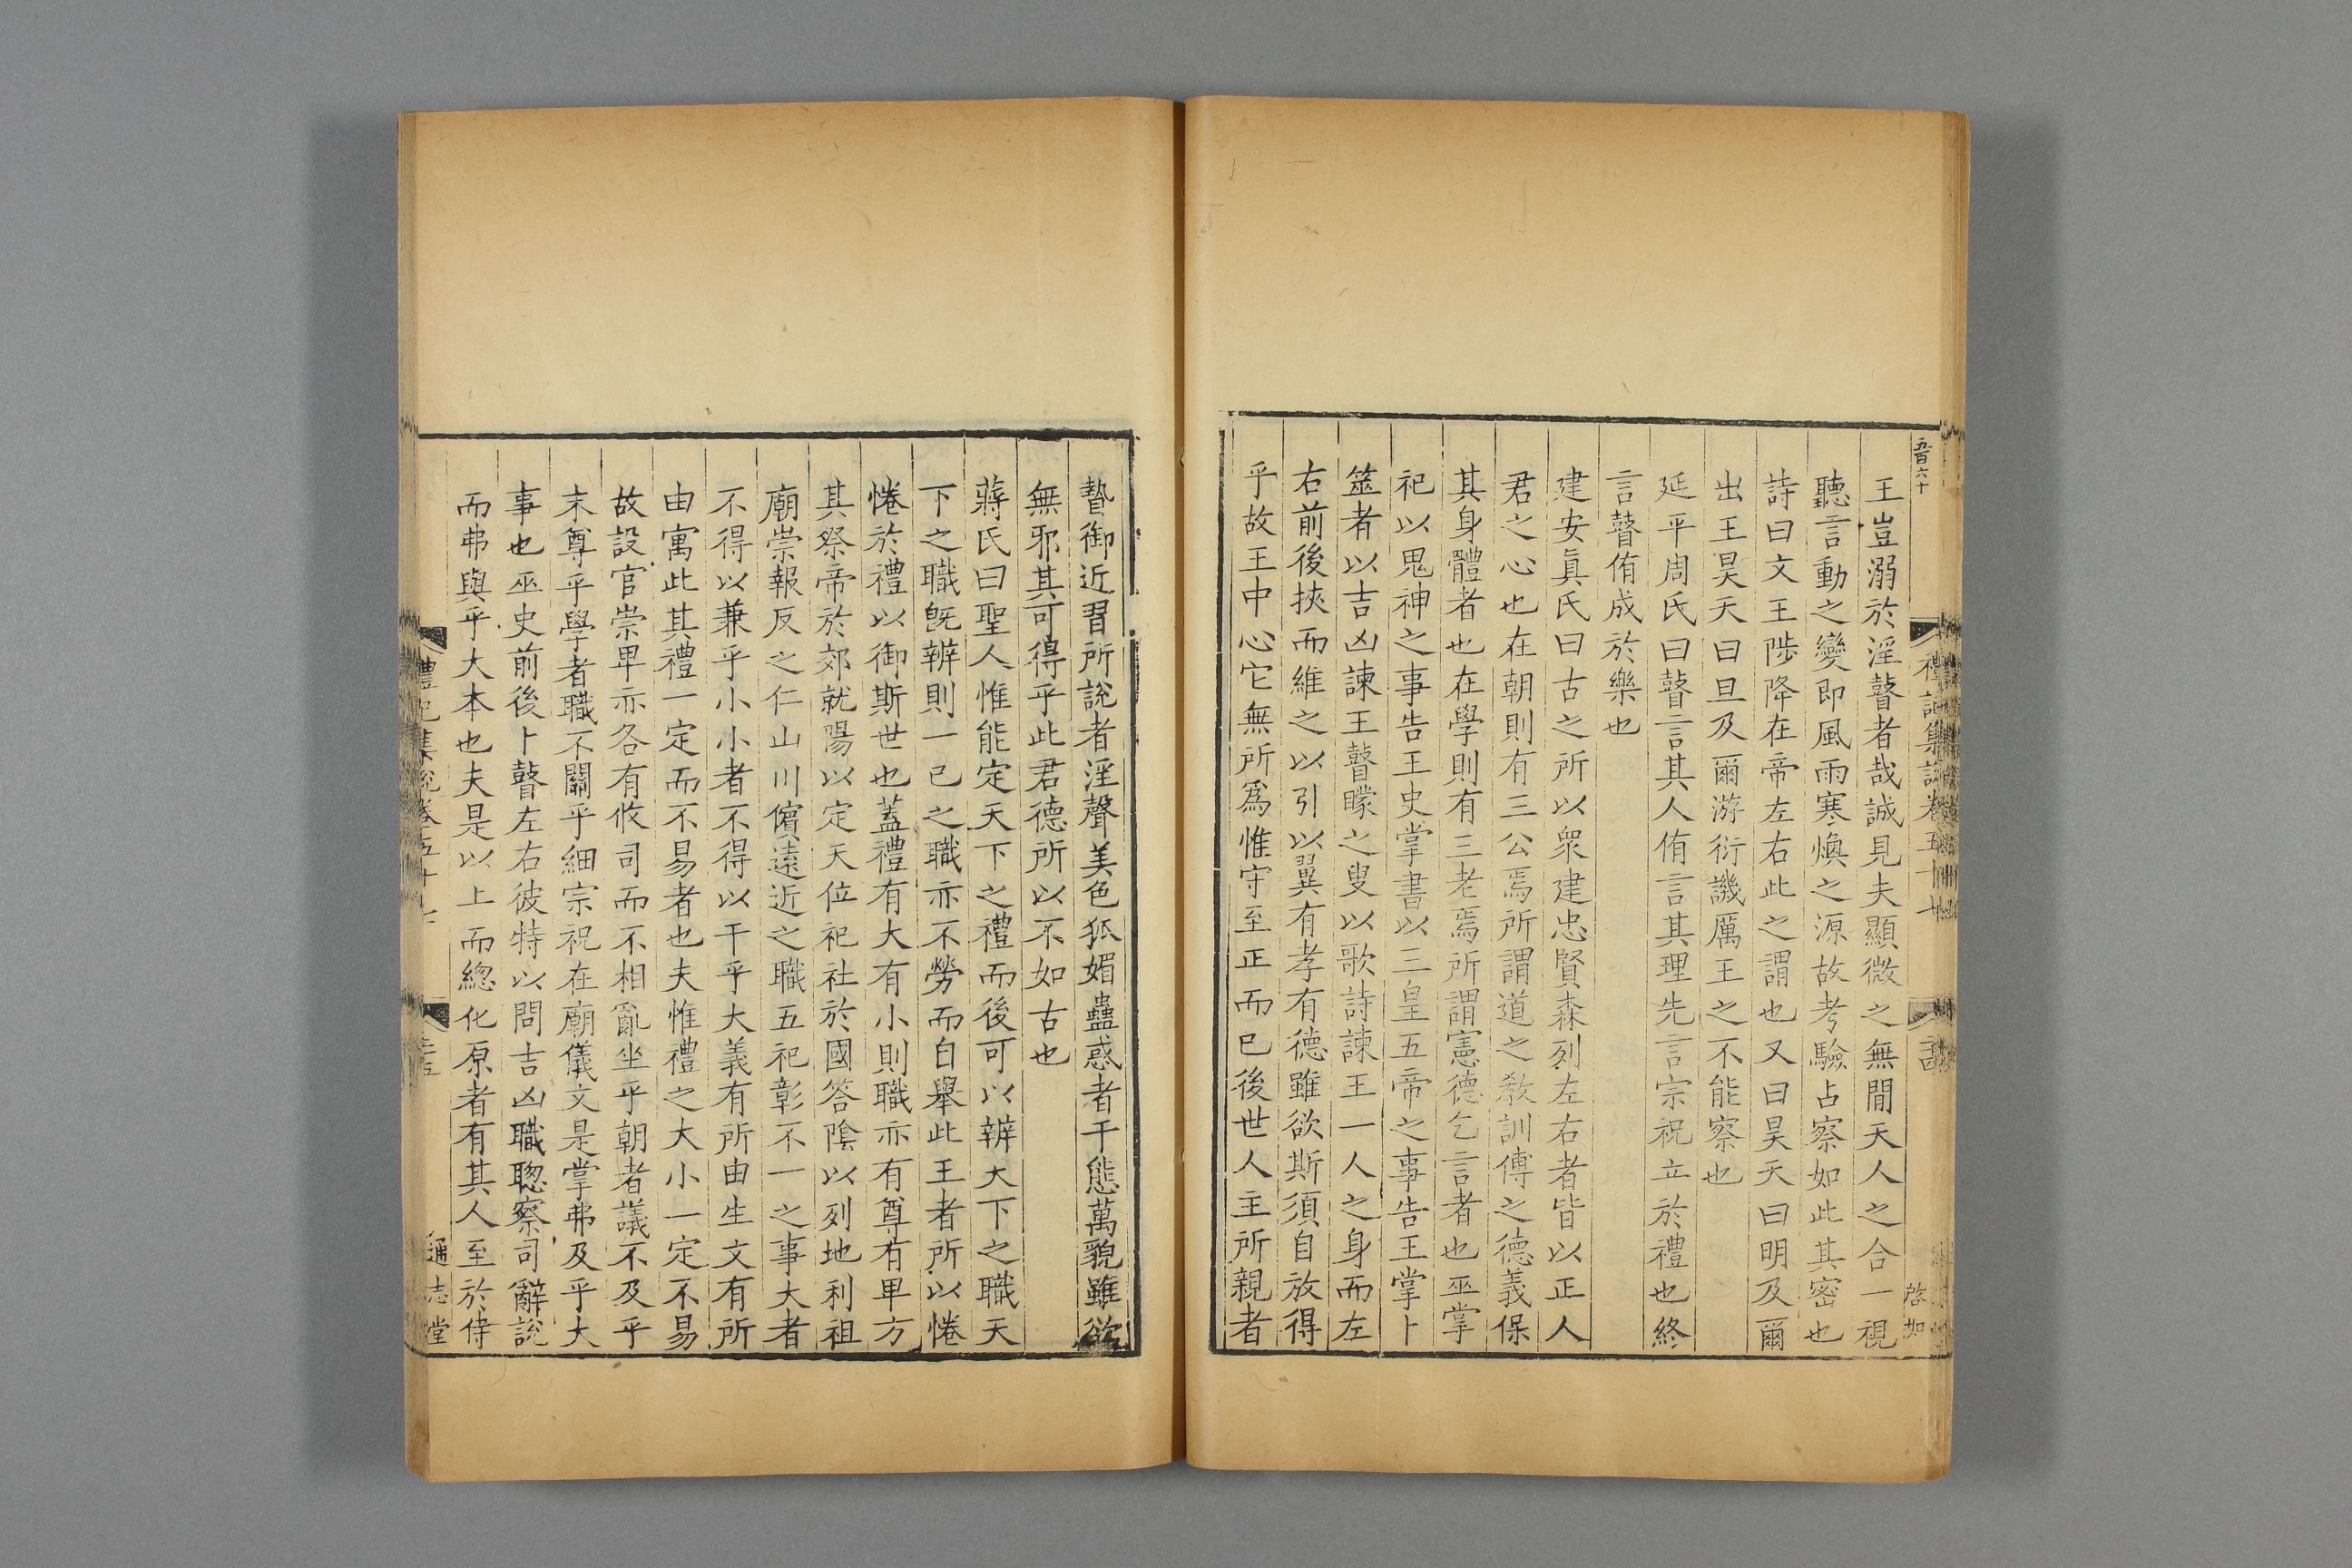 王豈溺於淫瞽者哉誠見夫顯微之無間天人之合一視
聽言動之變即風雨寒燠之源故考驗占察如此其密也
詩曰文王陟降在帝左右此之謂也又曰昊天曰明及爾
出王昊天曰旦及爾游衍譏厲王之不能察也
延平周氏曰瞽言其人侑言其理先言宗祝立於禮也終
言瞽侑成於樂也
建安眞氏曰古之所以衆建忠賢森列左右者皆以正人
君之心也在朝則有三公焉所謂道之敎訓傅之德義保
其身體者也在學則有三老焉所謂憲德乞言者也巫掌
祀以鬼神之事告王史掌書以三皇五帝之事告王掌卜
筮者以吉凶諫王瞽矇之叟以歌詩諫王一人之身而左
右前後挾而維之以引以翼有孝有德雖欲斯須自放得
乎故王中心它無所爲惟守至正而已後世人主所親者
暬御近習所說者淫聲美色狐媚蠱惑者千態萬貌雖欲
無邪其可得乎此君德所以不如古也
蔣氏曰聖人惟能定天下之禮而後可以辨天下之職天
下之職旣辨則一已之職亦不勞而自舉此王者所以惓
惓於禮以御斯世也蓋禮有大有小則職亦有尊有卑方
其祭帝於郊就陽以定天位祀社於國答隂以列地利祖
廟崇報反之仁山川儐遠近之職五祀彰不一之事大者
不得以兼乎小小者不得以干乎大義有所由生文有所
由寓此其禮一定而不易者也夫惟禮之大小一定不易
故設官崇卑亦各有攸司而不相亂坐乎朝者議不及乎
末尊乎學者職不關乎細宗祝在廟儀文是掌弗及乎大
事也巫史前後卜瞽左右彼特以問吉凶職聦察司辭說
而弗與乎大本也夫是以上而緫化原者有其人至於侍
禮記集說卷五十七
通志堂